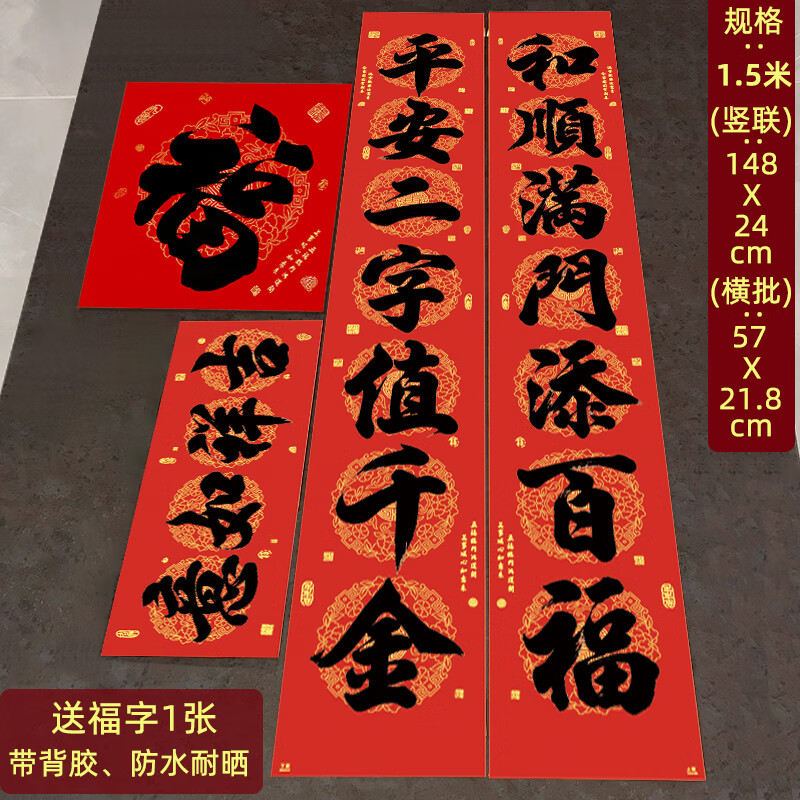 和順滿門添百福
平安二字值千金
福
吉祥如意
规格:
1.5米
(竖联):
148
X
24
cm
(横批):
57
X
21.8
cm
送福字1张
带背胶、防水耐晒